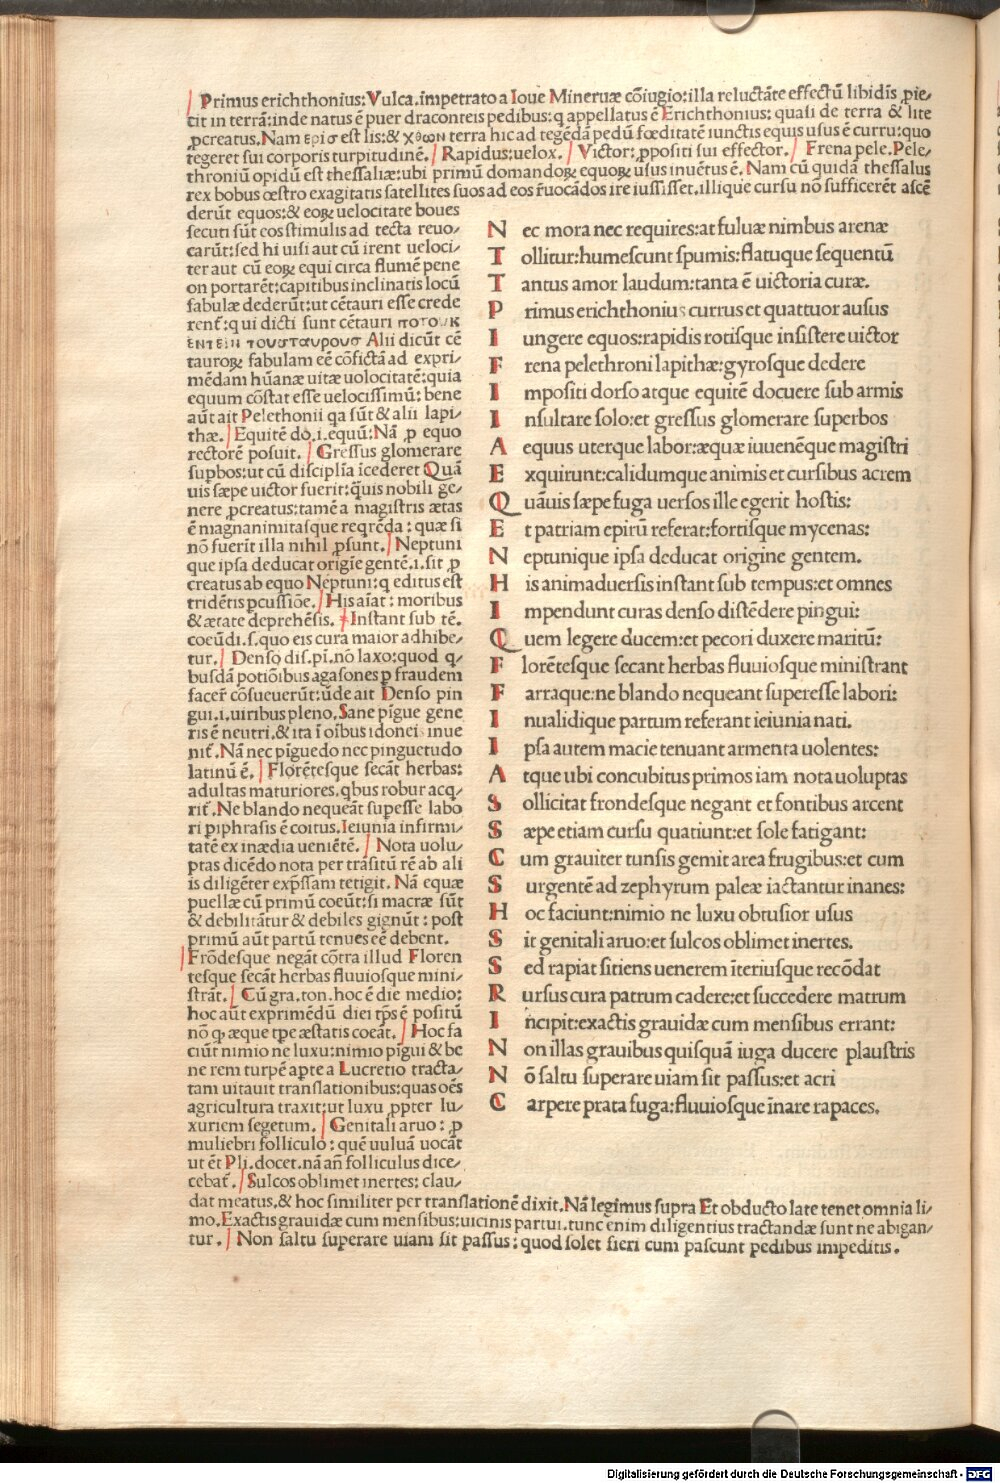 Primus erichthonius: Vulca. impetrato a Ioue Mineruæ cōiugio: illa reluctāte effectū libidīs ꝓie/
cit in terrā: inde natus ē puer draconteis pedibus: q appellatus ē Erichthonius: quasi de terra & lite
ꝓcreatus. Nam ερισ est lis: & χθων terra hic ad tegēdā pedū fœditatē iunctis equis usus ē curru: quo
tegeret sui corporis turpitudinē. Rapidus: uelox. Victor: ꝓpositi sui effector. Frena pele. Pele/
throniū opidū est thessaliæ: ubi primū domandoꝝ equoꝝ usus inuētus ē. Nam cū quidā thessalus
rex bobus œstro exagitatis satellites suos ad eos r̄uocādos ire iussisset. illique cursu nō sufficerēt ascē
derūt equos: & eoꝝ uelocitate boues
secuti sūt cos stimulis ad tecta reuo/
carūt: sed hi uisi aut cū irent ueloci/
ter aut cū eoꝝ equi circa flumē pene
on portarēt: capitibus inclinatis locū
fabulæ dederūt: ut cētauri esse crede
rent̄: qui dicti sunt cētauri ποτουκ
εντειν τουσταυρουσ Alii dicūt cē
tauroꝝ fabulam eē cōfictā ad expri/
mēdam hūanæ uitæ uolocitatē: quia
equum cōstat esse uelocissimū: bene
aūt ait Pelethonii qa sūt & alii lapi/
thæ. Equitē do. i. equū: Nā ꝓ equo
rectorē posuit. Gressus glomerare
supbos: ut cū disciplīa īcederet Quā
uis sæpe uictor fuerit: q̄uis nobili ge/
nere ꝓcreatus: tamē a magistris ætas
ē magnanimitasque reqrēda: quæ si
nō fuerīt illa nihil ꝓsunt. Neptuni
que ipsa deducat origīe gentē. i. sit ꝓ
creatus ab equo Neptuni: q editus est
tridētis pcussiōe. His aīat: moribus
& ætate deprehēsis. Instant sub tē.
coeūdi. s. quo eis cura maior adhibe/
tur. Denso dis. pī. nō laxo: quod q/
busdā potiōibus agasones p fraudem
facer̄ cōsueuerūt: ūde ait Denso pin
gui. i. uiribus pleno. Sane pīgue gene
ris ē neutri. & ita ī oībus idonei inue
nit̄. Nā nec pīguedo nec pinguetudo
latinū ē. Florētesque secāt herbas:
adultas maturiores. qbus robur acq/
rit̄. Ne blando nequeāt supesse labo
ri piphrasis ē coitus. Ieiunia infirmi/
tatē ex inædia ueniētē. Nota uolu/
ptas dicēdo nota per trāsitū rē ab ali
is diligēter exp̄ssam tetigit. Nā equæ
puellæ cū primū coeūt: si macræ sūt
& debilitātur & debiles gignūt: post
primū aūt partū tenues eē debent.
Frōdesque negāt cōtra illud Floren
tesque secāt herbas fluuiosque mini/
strāt. Cū gra. ton. hoc ē die medio:
hoc aūt exprimēdū diei tp̄s ē positū
nō ꝙ æque tp̄e æstatis coeāt. Hoc fa
ciūt nimio ne luxu: nimio pīgui & be
ne rem turpē apte a Lucretio tracta/
tam uitauit translationibus: quas oēs
agricultura traxit: ut luxu ꝓpter lu/
xuriem segetum. Genitali aruo: ꝓ
muliebri folliculo: quē uuluā uocāt
ut ēt Pli. docet. nā añ folliculus dice/
cebat̄. Sulcos oblimet inertes: clau/
dat meatus. & hoc similiter per translationē dixit. Nā legimus supra Et obducto late tenet omnia li/
mo. Exactis grauidæ cum mensibus: uicinis partui. tunc enim diligentius tractandæ sunt ne abigan/
tur. Non saltu superare uiam sit passus: quod solet fieri cum pascunt pedibus impeditis.
N ec mora nec requires: at fuluæ nimbus arenæ
T ollitur: humescunt spumis: flatuque sequentū
T antus amor laudum: tanta ē uictoria curæ.
P rimus erichthonius currus et quattuor ausus
I ungere equos: rapidis rotisque insistere uictor
F rena pelethroni lapithæ: gyrosque dedere
I mpositi dorso atque equitē docuere sub armis
I nsultare solo: et gressus glomerare superbos
A equus uterque labor: æquæ iuuenēque magistri
E xquirunt: calidumque animis et cursibus acrem
Q uāuis sæpe fuga uersos ille egerit hostis:
E t patriam epirū referat: fortisque mycenas:
N eptunique ipsa deducat origine gentem.
H is animaduersis instant sub tempus: et omnes
I mpendunt curas denso distēdere pingui:
Q uem legere ducem: et pecori duxere maritū:
F lorētesque secant herbas fluuiosque ministrant
F arraque: ne blando nequeant superesse labori:
I nualidique partum referant ieiunia nati.
I psa autem macie tenuant armenta uolentes:
A tque ubi concubitus primos iam nota uoluptas
S ollicitat frondesque negant et fontibus arcent
S æpe etiam cursu quatiunt: et sole fatigant:
C um grauiter tunsis gemit area frugibus: et cum
S urgentē ad zephyrum paleæ iactantur inanes:
H oc faciunt: nimio ne luxu obtusior usus
S it genitali aruo: et sulcos oblimet inertes.
S ed rapiat sitiens uenerem īteriusque recōdat
R ursus cura patrum cadere: et succedere matrum
I ncipit: exactis grauidæ cum mensibus errant:
N on illas grauibus quisquā iuga ducere plaustris
N ō saltu superare uiam sit passus: et acri
C arpere prata fuga: fluuiosque īnare rapaces.
Digitalisierung gefördert durch die Deutsche Forschungsgemeinschaft - DFG